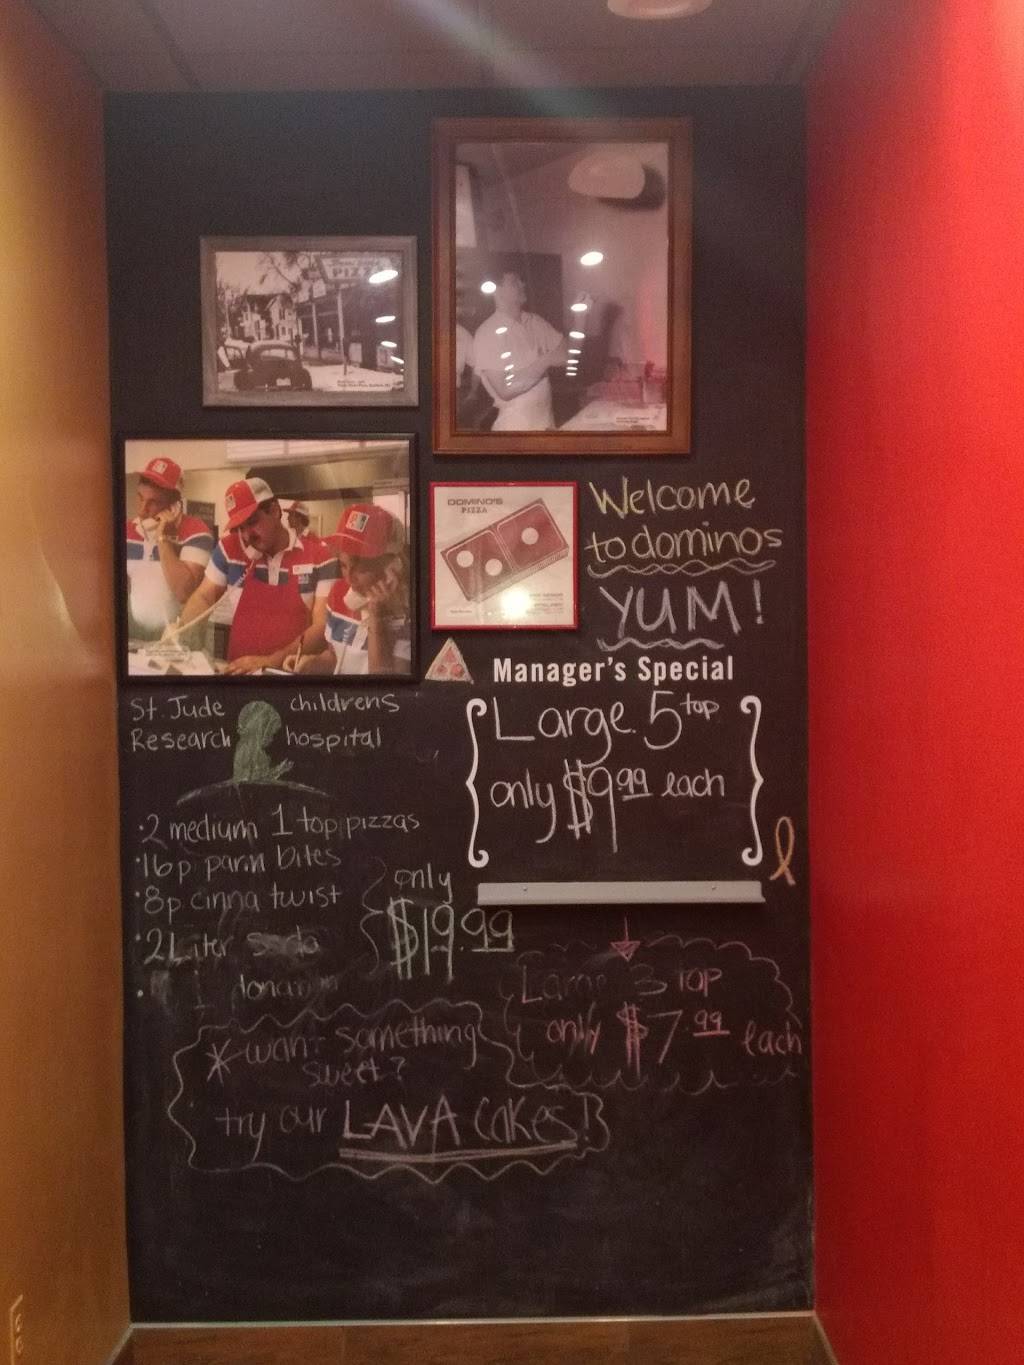 PIZZA
DOMINO'S
PIZZA
Welcome
to dominos
YUM!
Manager's Special
Large 5 top
only $9.99 each
St. Jude childrens
Research hospital
•2 medium 1 top pizzas
•16p parm bites
•8p cinna twist
•2 Liter soda
• 1 donation
only
$19.99
Large 3 top
only $7.99 each
*want something
sweet?
try our LAVA Cakes!!